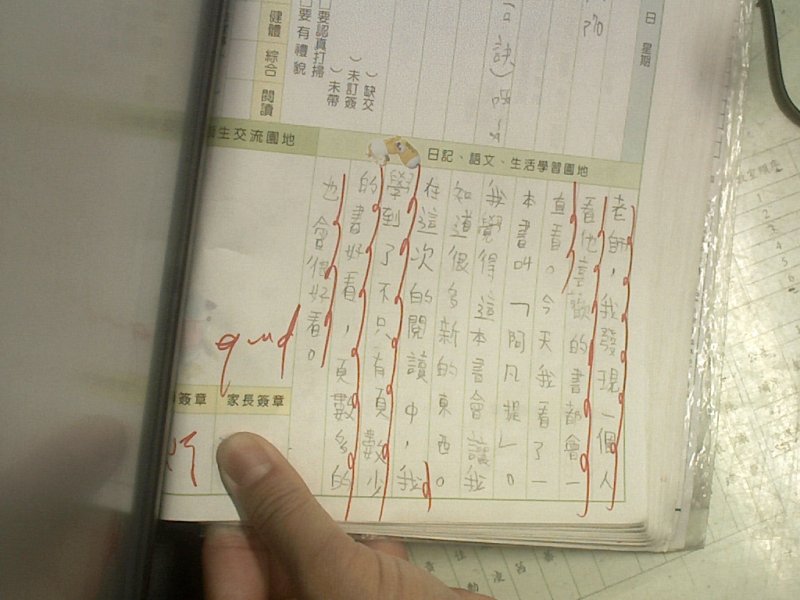 日 星期
370
缺交
未訂簽
未帶
要認真打掃
要有禮貌
健體 綜合 閱讀
日記、語文、生活學習園地
生交流園地
老師，我發現一個人
看他喜歡的書都會一
直看。今天我看了一
本書叫「阿凡提」。
我覺得這本書會讓我
知道很多新的東西。
在這次的閱讀中，我
學到了不只有頁數少
的書好看，頁數多的
也會很好看。
good
家長簽章
簽章